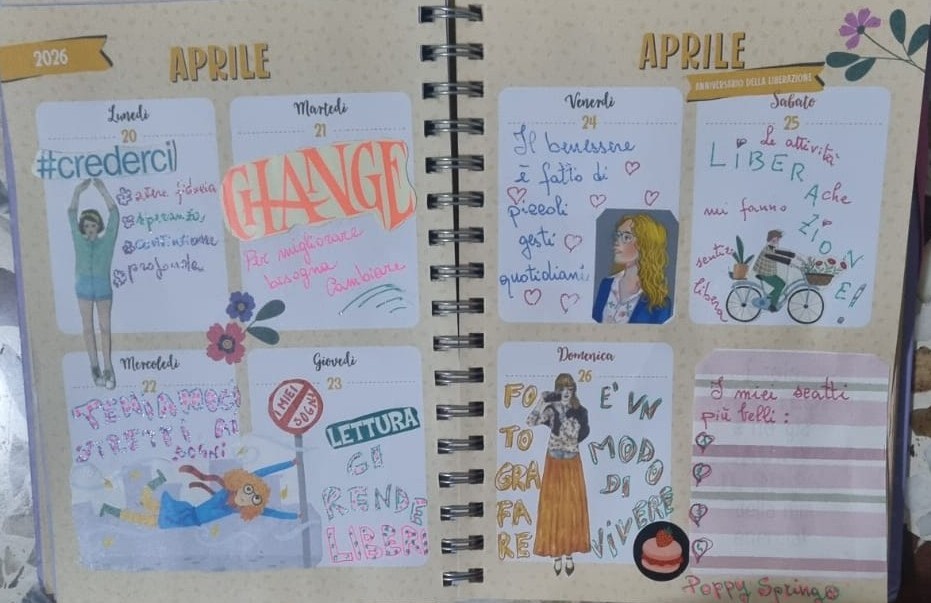 2026
APRILE
Lunedì
20
#crederci
avere fiducia
speranza,
convinzione
profonda
Martedì
21
CHANGE
Per migliorare
bisogna
Cambiare
Mercoledì
22
TENIAMOCI
STRETTI AI
SOGNI
Giovedì
23
I MIEI
SOGNI
LETTURA
CI
RENDE
LIBERI
APRILE
ANNIVERSARIO DELLA LIBERAZIONE
Venerdì
24
Il benessere
è fatto di
piccoli
gesti
quotidiani
Sabato
25
Le attività
LIBER
A che
mi fanno
ZION
sentire
E!
libera
Domenica
26
FO
TO
GRA
FA
RE
E' UN
MODO
DI
VIVERE
I miei scatti
più belli:
Poppy Spring